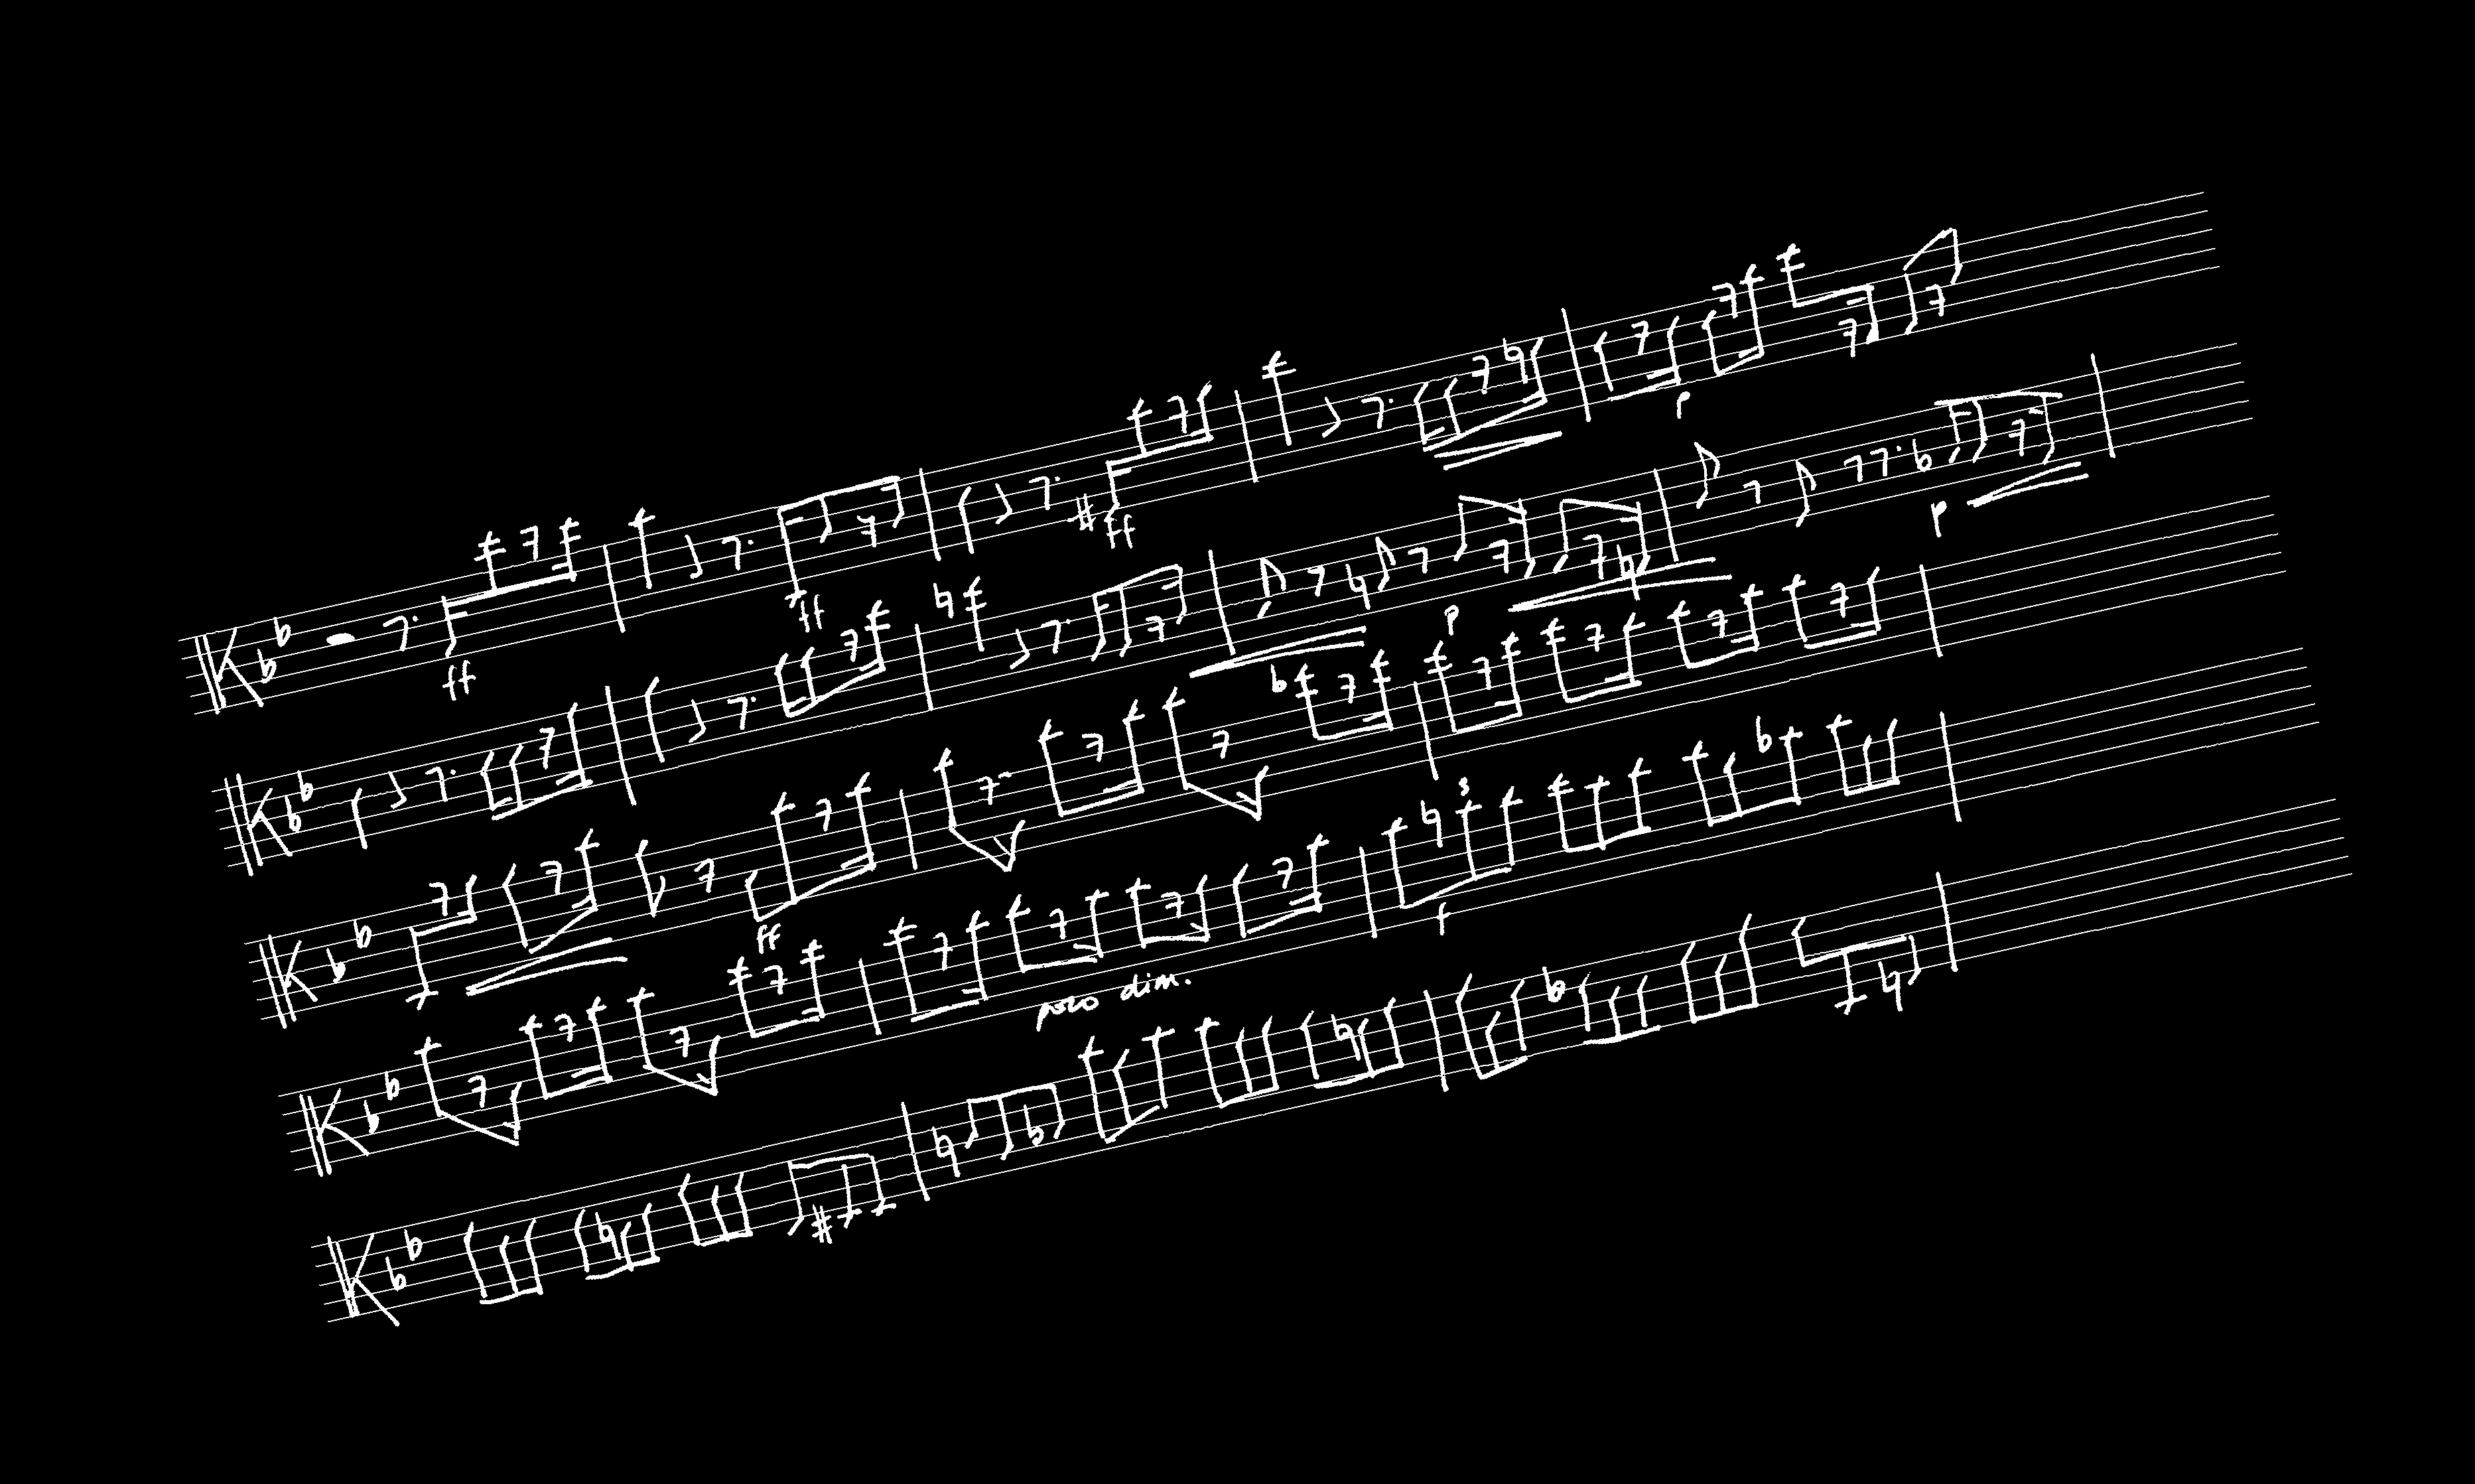 ff ff ff p
p p
ff
poco dim. s f